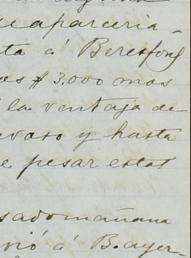 de aparceria-
ta á Beresford
as $ 3.000 mas
la ventaja de
y hasta
e pesar estas
pasado mañana
vió á B. ayer-